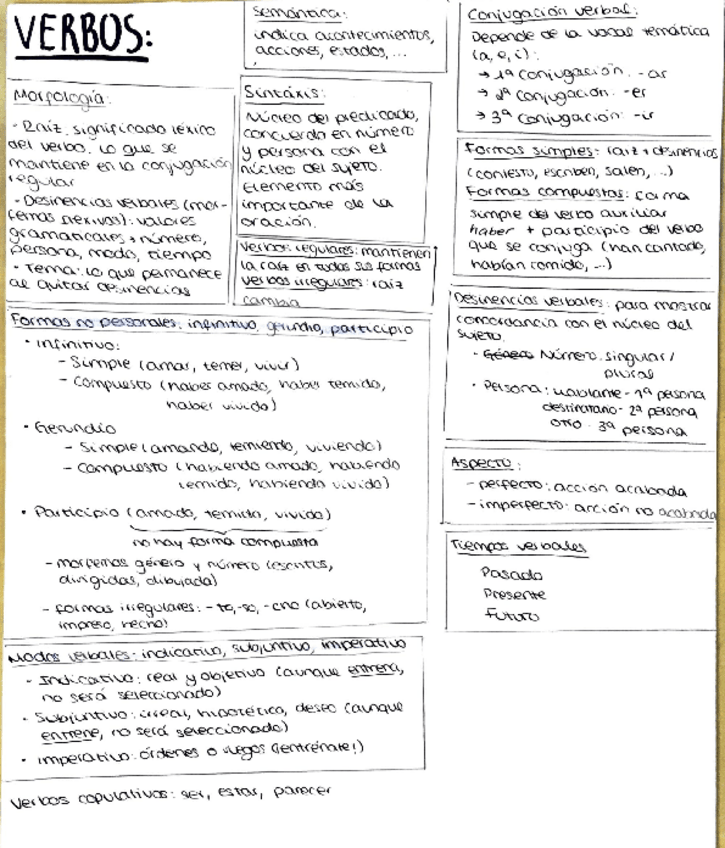 VERBOS:
Semántica:
indica acontecimientos,
acciones, estados, ...
Conjugación verbal:
Depende de la vocal temática
(a, e, i):
→ 1ª conjugación: -ar
→ 2ª conjugación: -er
→ 3ª conjugación: -ir
Morfología:
- Raíz: significado léxico
del verbo. Lo que se
mantiene en la conjugación
regular
- Desinencias verbales (mor-
femas flexivos): valores
gramaticales → número,
persona, modo, tiempo
- Tema: lo que permanece
al quitar desinencias
Sintaxis:
Núcleo del predicado,
concuerda en número
y persona con el
núcleo del sujeto.
Elemento más
importante de la
oración.
Verbos regulares: mantienen
la raíz en todas sus formas
Verbos irregulares: raíz
cambia
Formas simples: raíz + desinencias
(contesto, escriben, salen, ...)
Formas compuestas: forma
simple del verbo auxiliar
haber + participio del verbo
que se conjuga (han cantado,
habían comido, ...)
Formas no personales: infinitivo, gerundio, participio
• Infinitivo:
- Simple (amar, temer, vivir)
- Compuesto (haber amado, haber temido,
haber vivido)
• Gerundio
- Simple (amando, temiendo, viviendo)
- Compuesto (habiendo amado, habiendo
temido, habiendo vivido)
• Participio (amado, temido, vivido)
no hay forma compuesta
- morfemas género y número (escritos,
dirigidas, dibujada)
- formas irregulares: -to, -so, -cho (abierto,
impreso, hecho)
Desinencias verbales: para mostrar
concordancia con el núcleo del
sujeto.
• Género Número: singular /
plural
• Persona: hablante - 1ª persona
destinatario - 2ª persona
otro - 3ª persona
Aspecto:
- perfecto: acción acabada
- imperfecto: acción no acabada
Tiempos verbales
Pasado
Presente
Futuro
Modos verbales: indicativo, subjuntivo, imperativo
- Indicativo: real y objetivo (aunque entrena,
no será seleccionado)
• Subjuntivo: irreal, hipotético, deseo (aunque
entrene, no será seleccionado)
• imperativo: órdenes o ruegos (¡entrénate!)
Verbos copulativos: ser, estar, parecer